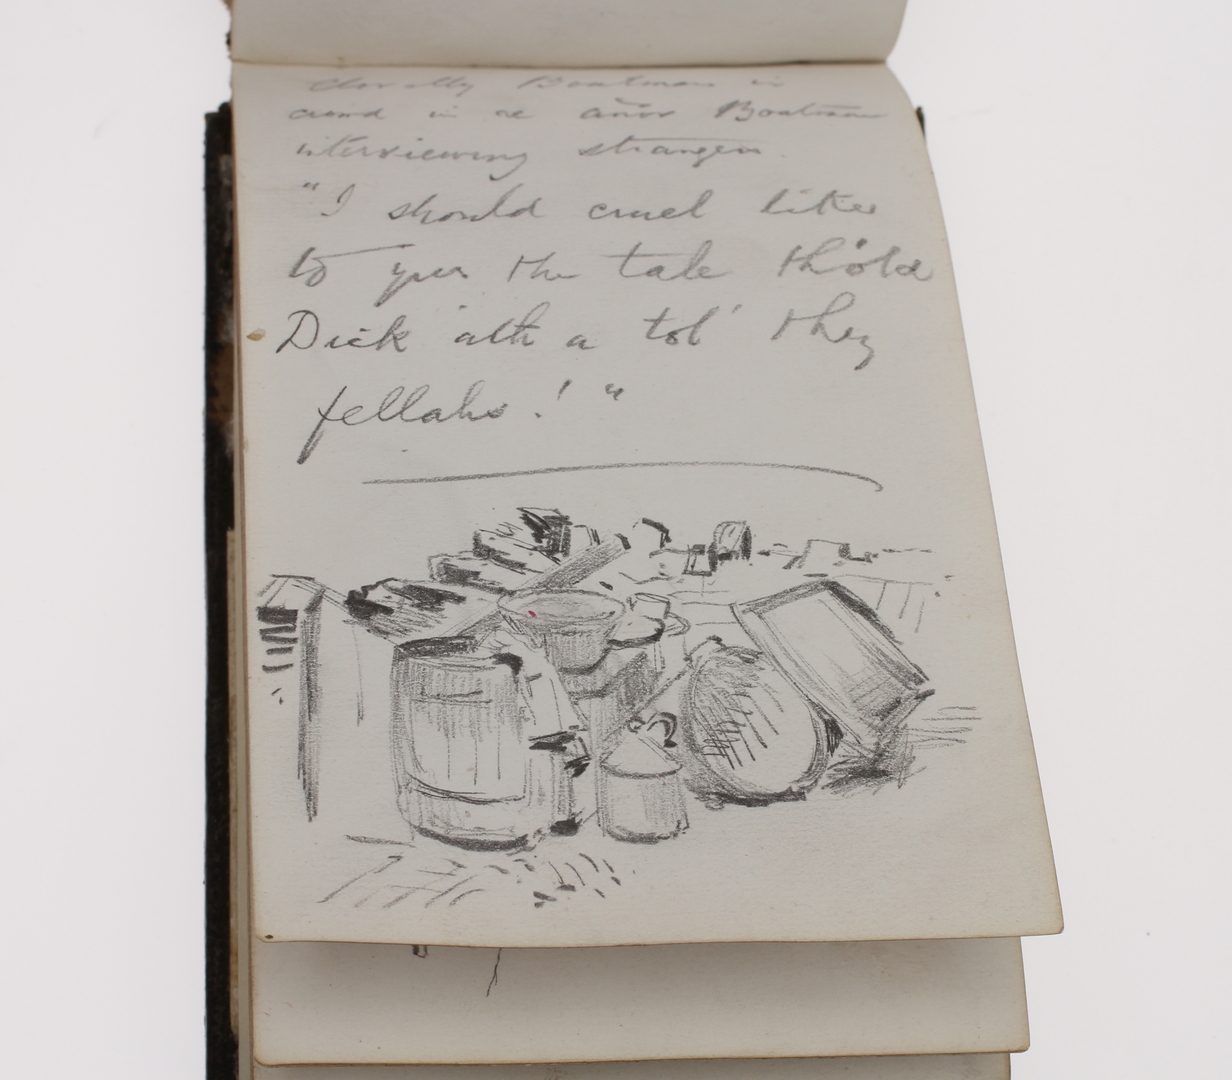 Clovelly Boatman in
crowd in re Boatman
interviewing strangers.
"I should cruel like
to yer the tale th'old
Dick 'ath a tol' they
fellahs! "